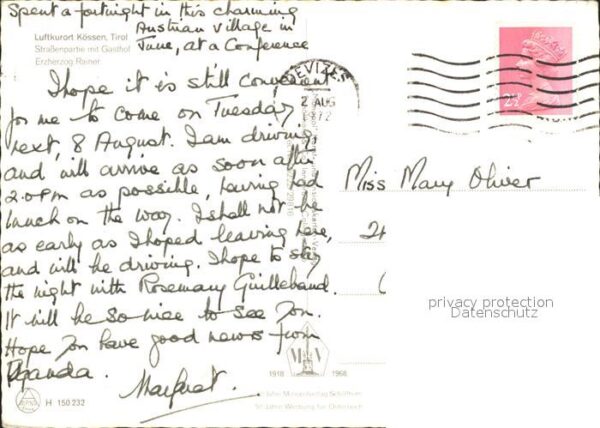 Spent a fortnight in this charming
Austrian Village in
June, at a Conference
Luftkurort Kössen, Tirol
Straßenpartie mit Gasthof
Erzherzog Rainer
I hope it is still convenient
for me to come on Tuesday
next, 8 August. I am driving
and will arrive as soon after
2.0pm as possible, having had
lunch on the way. I shall not be
as early as I hoped leaving here,
and will be driving. I hope to stay
the night with Rosemary Guillebaud.
It will be so nice to see you.
Hope you have good news from
Uganda.
Margaret.
DEVIZES
2 AUG
1972
2½P
Miss Mary Oliver
24
privacy protection
Datenschutz
1918 MV 1968
50 Jahre Werbung für Österreich
H 150 232